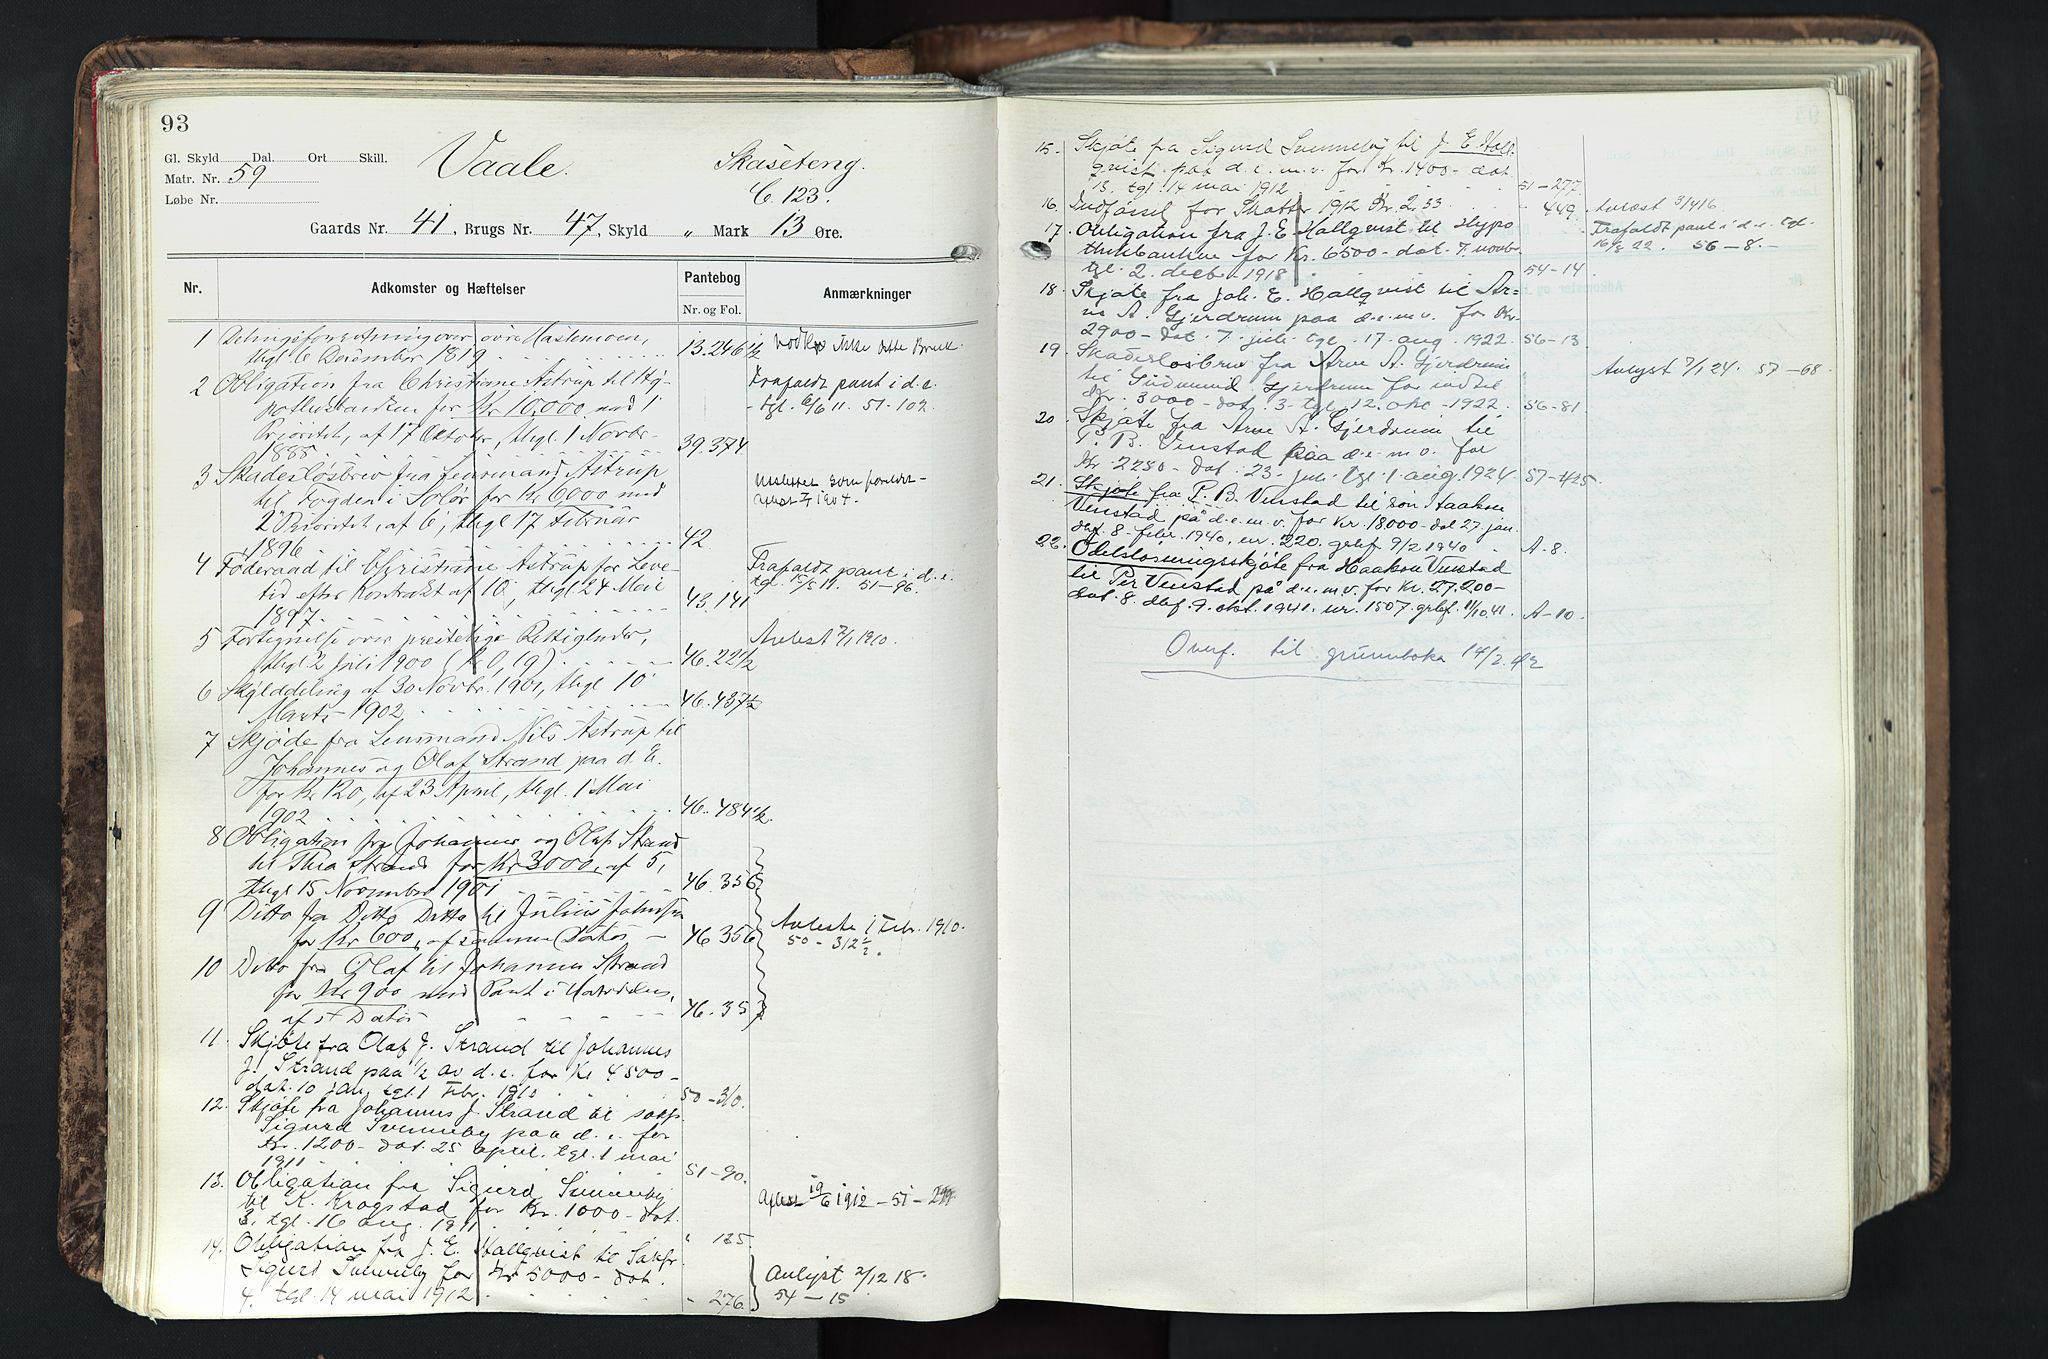 93
Gl. Skyld Dal. Ort Skill.
Matr. Nr. 59
Løbe Nr.
Vaale. Skaseteng.
C. 123.
Gaards Nr. 41, Brugs Nr. 47, Skyld „ Mark 13 Øre.
Nr. Adkomster og Hæftelser Pantebog Anmærkninger
Nr. og Fol.
1 over øvre Hastemoen,
thgl 6 December 1819 13.246 1/2 vedk ikke dette Bruk.
2 Obligation fra Christiane Astrup til Hy-
pothekbanken for Kr 10,000 med 1
Prioritet, af 17 Oktober, thgl. 1 Novbr.
1885 39.374
Frafaldt pant i d. e.
tgl. 6/6 11. 51-102.
3 Skadesløsbrev fra Lensmand Astrup
til Fogden i Solør for Kr 6000 med
2 Prioritet, af 6, thgl 17 Februar
1896 42.
slettet som forældet
4 Føderaad til Christiane Astrup for Leve-
tid efter Kontrakt af 10, thgl 24 Mai
1897 43.141
Frafaldt pant i d. e.
tgl. 15/5 11. 51-96.
5 Fortegnelse over Rettigheder,
thgl 2 Juli 1900 (Kr 0,19) 46.22 1/2
Avlest 7/1 1910.
6 Skylddeling af 30 Novbr. 1901, thgl 10
Marts 1902 46.437 1/2
7 Skjøde fra Lensmand Nils Astrup til
Johannes og Olaf Strand paa d. E.
for Kr 120, af 23 April, thgl. 1 Mai
1902 46.484 1/2.
8 Obligation fra Johannes og Olaf Strand
til Thea Strand for Kr 3000, af 5,
thgl 15 November 1901 46.356
9 Ditto fra Ditto Ditto til Julius Johnsen
for Kr 600, af samme Datos 46.356
Avleste 1 Febr. 1910.
50-312 1/2.
10 Ditto fra Olaf til Johannes Strand
for Kr 900 med Pant i
af s. Datos 46.357
11. Skjøte fra Olaf J. Strand til Johannes
J. Strand paa 1/2 av d. e. for Kr 4500-
dat. 10 jan, tgl. 1 Febr. 1910 50-310.
12. Skjøte fra Johannes J. Strand til sakf.
Sigurd Svenneby paa d. e. for
Kr. 1200- dat. 25 april, tgl. 1 mai
1911 51-90.
13. Obligation fra Sigurd Svenneby
til K. Krogstad for Kr. 1000- dat.
3. tgl. 16 aug. 1911 " 125.
Avlest 19/6 1912-51-299.
14. Obligation fra J. E. Hallqvist til Sakfr.
Sigurd Svenneby for Kr 5000- dat.
4. tgl. 14 mai 1912 " 276.
Avlyst 2/12 18.
54-15
15. Skjøte fra Sigurd Svenneby til J. E. Hall-
qvist paa d. e. m. v. for Kr. 1400- dat.
13. tgl. 14 mai 1912 51-277.
16. Indførsel for Skatter 1912 Kr. 2.33 - 449.
Avlæst 3/4 16
17. Obligation fra J. E. Hallqvist til Hypo
thekbanken for Kr. 6500- dat. 7. novbr
tgl. 2. decbr 1918 54-14
Frafaldt pant i d. e. tgl.
16/8 22. 56-8.
18. Skjøte fra Joh. E. Hallqvist til Ar-
ne A. Gjerdrum paa d. e. m. v. for Kr.
2900- dat. 7. juli tgl. 17. aug. 1922 56-13
19. Skadesløsbrev fra Arne A. Gjerdrum
til Gudmund Gjerdrum for indtil
Kr. 3000- dat. 3- tgl. 12. okt-1922. 56-81
Avlyst 7/1 24. 57-68.
20. Skjøte fra Arne A. Gjerdrum til
P. B. Venstad paa d. e. m. v. for
Kr. 2250- dat. 23. juli tgl. 1 aug 1924 57-425
21. Skjøte fra P. B. Venstad til søn Haakon
Venstad på d. e. m. v. for kr. 18000- dat 27. jan.
dbf. 8. febr. 1940, nr. 220. grbf. 9/2 1940 A-8.
22. Odelsløsningsskjøte fra Haakon Venstad
til Per Venstad på d. e. m. v. for Kr. 27.200-
dat. 8. dbf. 9. okt. 1941. nr. 1507. grbf. 11/10.41. A-10.
Overf. til grunnboka 14/2. 42